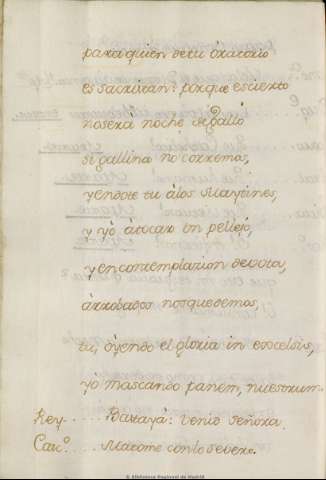 para quien de tu oratorio
es sacristan: porque es cierto
no será noche de gallo
si gallina no corremos,
yendote tu álos Maytines,
y yó átocar un pellejo,
y en contemplazion devota,
árrobados nos quedemos,
tu, óyendo el gloria in excelsis,
yó mascando panem, nuestrum.
Rey..... Bastayá: venid señora.
Carc.º.... Matome con lo severo.
© Biblioteca Regional de Madrid